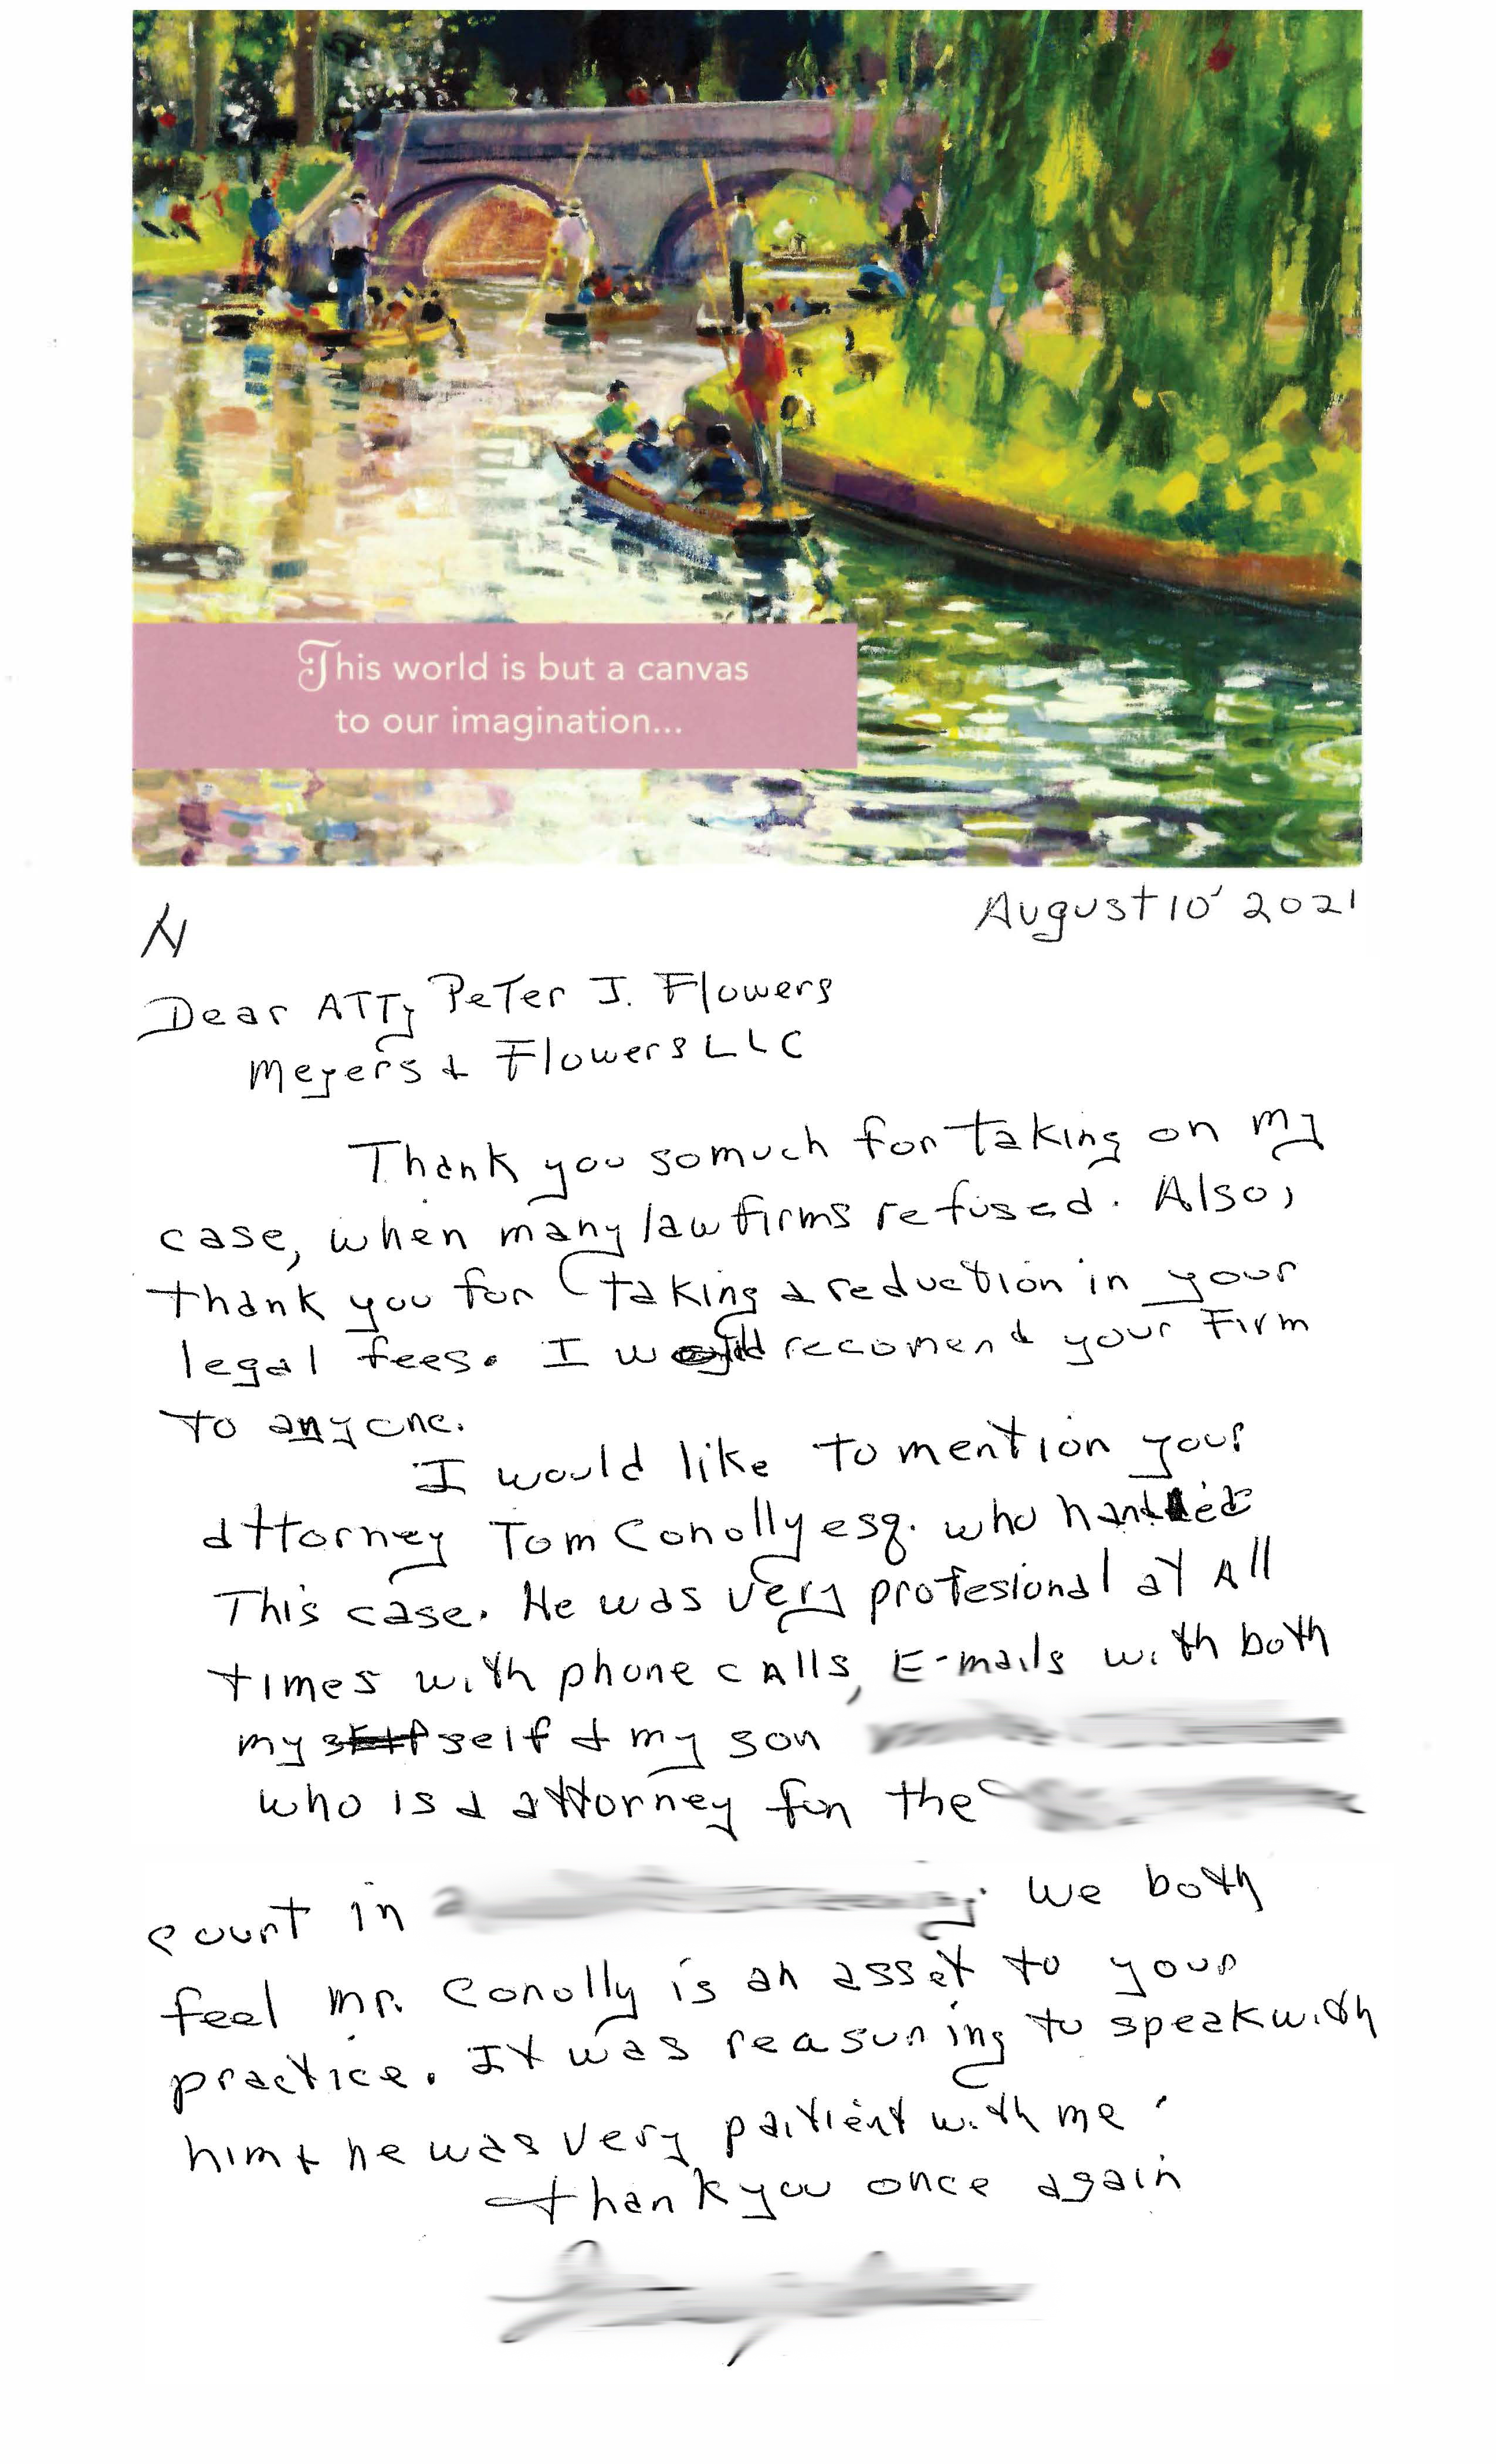 This world is but a canvas
to our imagination...
August 10' 2021
Dear ATTy PeTer J. Flowers
Meyers + Flowers LLC
Thank you somuch for taking on my
case, when many law firms refused. Also,
thank you for taking a reduction in your
legal fees. I would recomend your Firm
To anyone.
I would like to mention your
attorney Tom Conolly esq. who handled
This case. He was very profesional at All
times with phone cAlls, E-mails with both
my self + my son
who is a attorney for the
court in
we both
feel mr. Conolly is an asset to your
practice. It was reasuring to speak with
him + he was very patient with me.
thank you once again